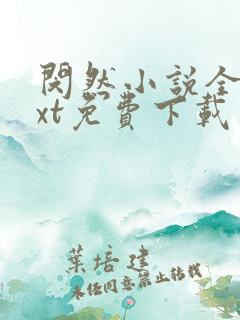 閔然小説全
xt免費下載
葉培建
未经同意禁止转载